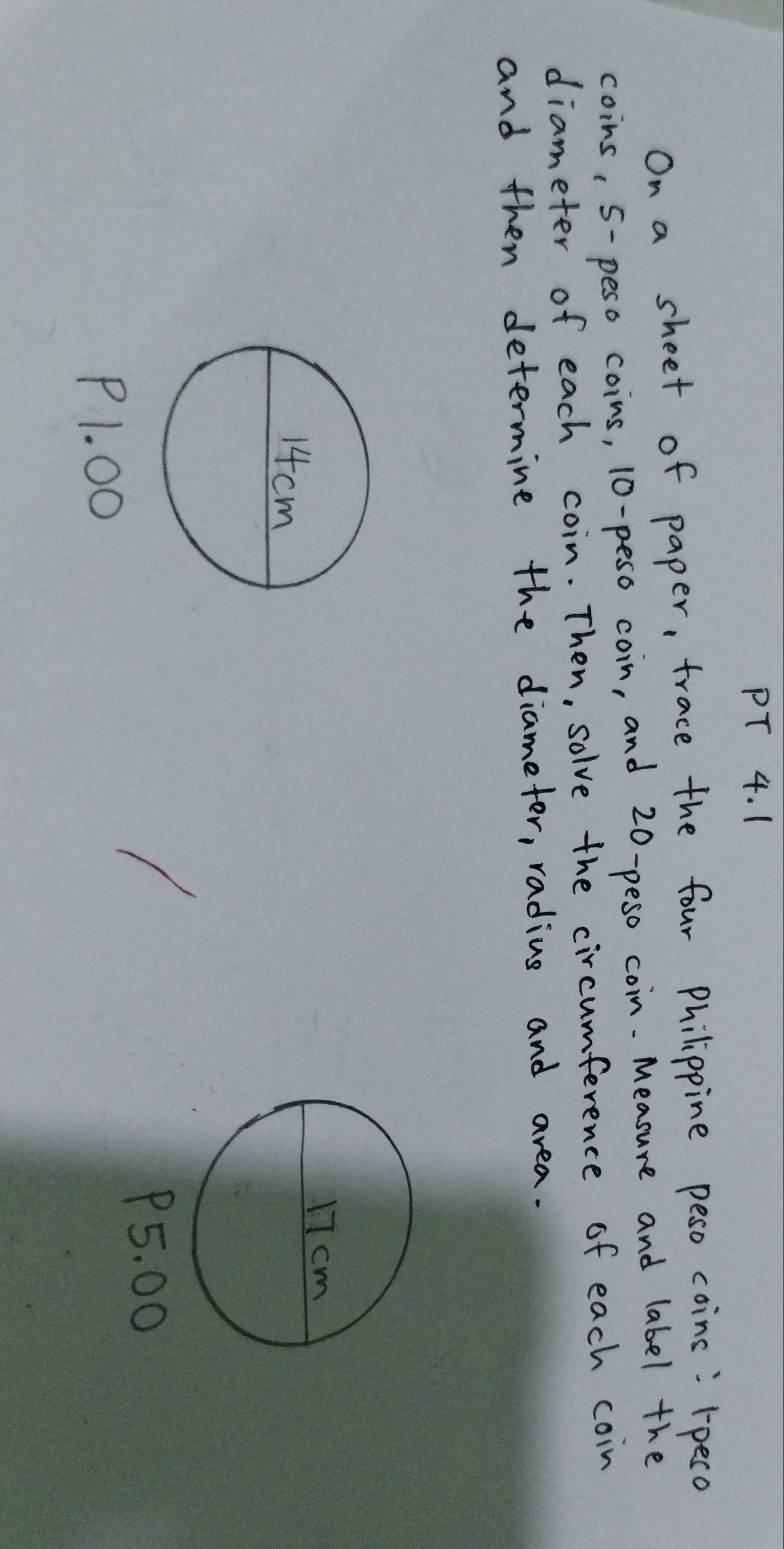 PT 4.1
On a sheet of paper, trace the four Philippine peso coins: 1-peso
coins, 5-peso coins, 10-peso coin, and 20-peso coin. Measure and label the
diameter of each coin. Then, solve the circumference of each coin
and then determine the diameter, radius and area.
14cm
17cm
P1.00
P5.00